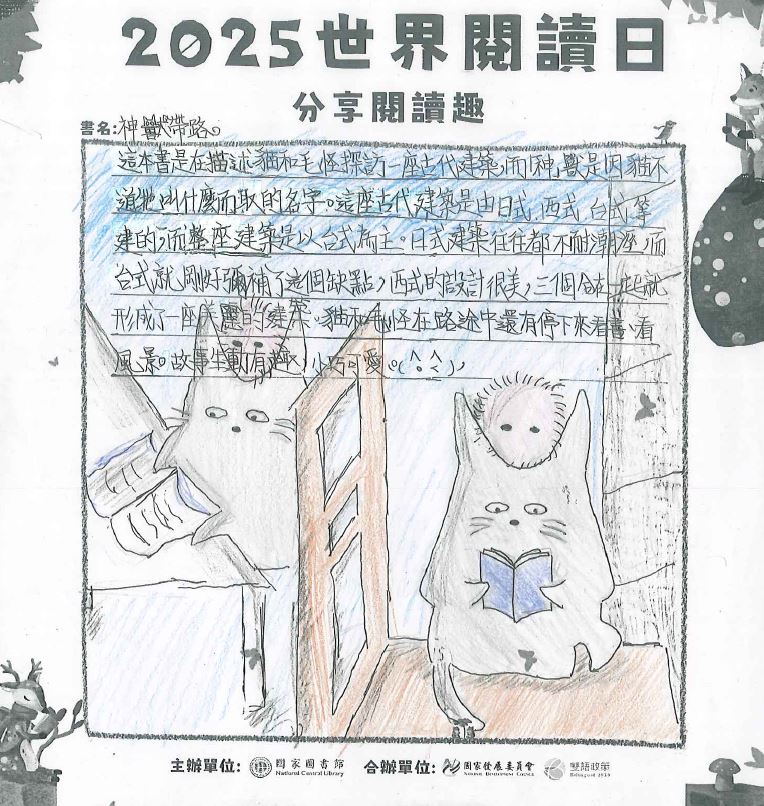 2025世界閱讀日
分享閱讀趣
書名:神獸帶路。
這本書是在描述貓和毛怪探訪一座古代建築,而神獸是因貓不
道牠叫什麼而取的名字。這座古代建築是由日式、西式、台式等
建的,而整座建築是以台式為主。日式建築往往都不耐潮溼,而
台式就剛好彌補了這個缺點,西式的設計很美,三個合在一起就
形成了一座美麗的建築。貓和毛怪在路途中還有停下來看書、看
風景。故事生動有趣,小巧可愛。
主辦單位: 國家圖書館 National Central Library 合辦單位: 國家發展委員會 NATIONAL DEVELOPMENT COUNCIL 雙語政策 Bilingual 2030